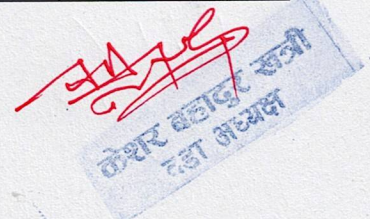 केशर बहादुर खत्री
वडा अध्यक्ष